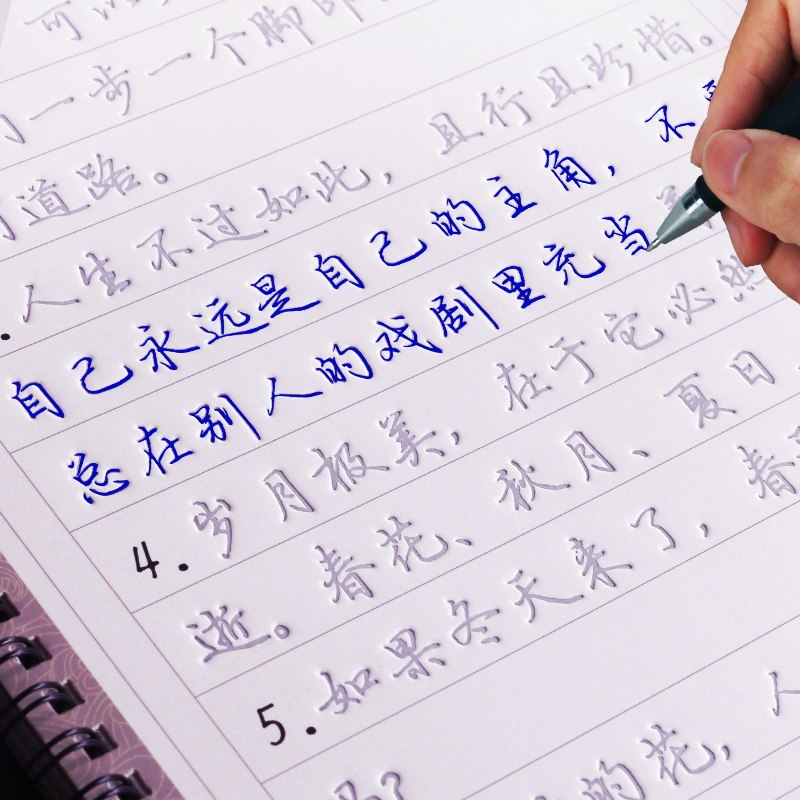 可以
一步一个脚印
道路。 且行且珍惜。
人生不过如此，
自己永远是自己的主角，不
总在别人的戏剧里充当
4.岁月极美，在于它必然
逝。春花、秋月、夏日
5.如果冬天来了，春
的花，人